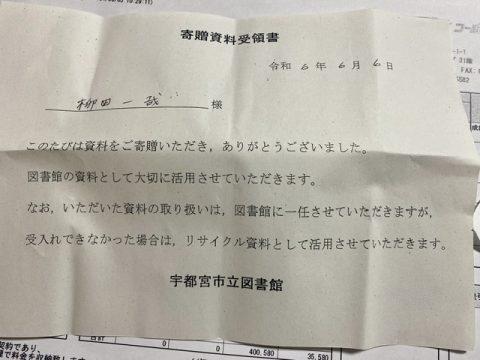 寄贈資料受領書
令和 6 年 6 月 6 日
柳田一哉 様
このたびは資料をご寄贈いただき，ありがとうございました。
図書館の資料として大切に活用させていただきます。
なお，いただいた資料の取り扱いは，図書館に一任させていただきますが，
受入れできなかった場合は，リサイクル資料として活用させていただきます。
宇都宮市立図書館
合計 0 0 400,580 35,580
契約であり、